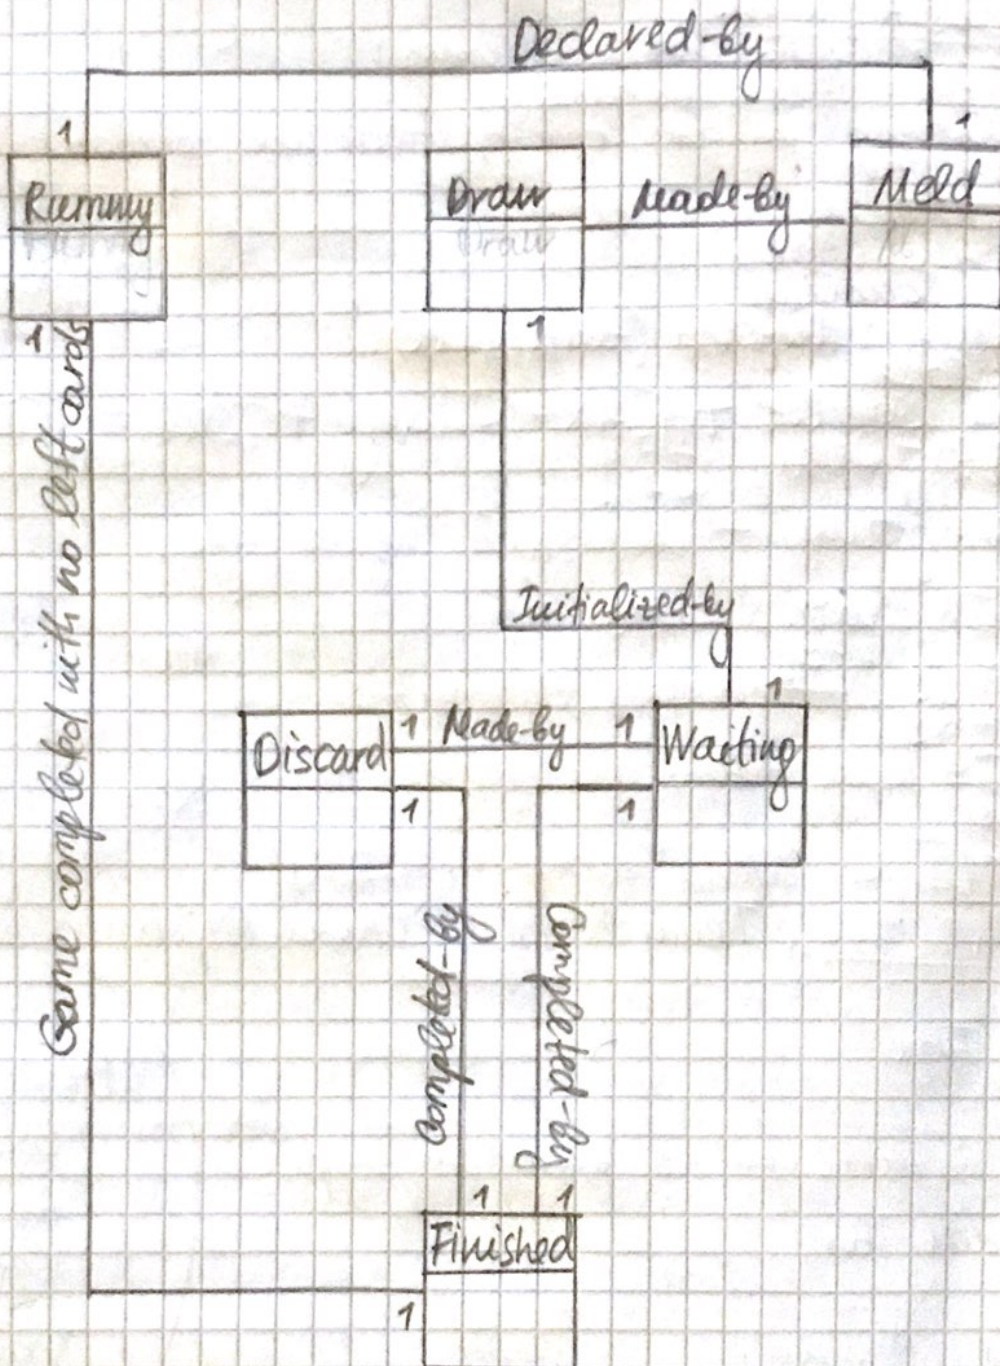 Declared-by
1
1
Rummy
Draw
Made-by
Meld
Draw
1
1
Game completed with no left cards
Initialized-by
1
Discard
1
Made-by
1
Waiting
1
1
Completed-by
Completed-by
1
1
Finished
1